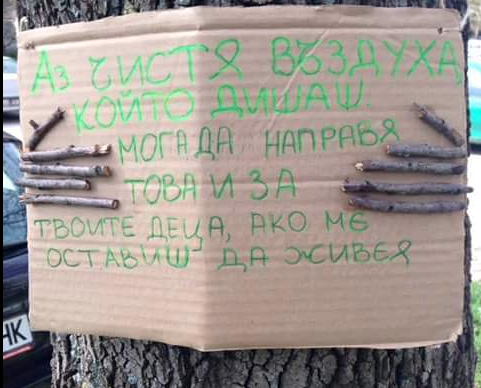 Аз ЧИСТЯ ВЪЗДУХА,
КОЙТО ДИШАШ.
МОГА ДА НАПРАВЯ
ТОВА И ЗА
ТВОИТЕ ДЕЦА, АКО МЕ
ОСТАВИШ ДА ЖИВЕЯ
НК